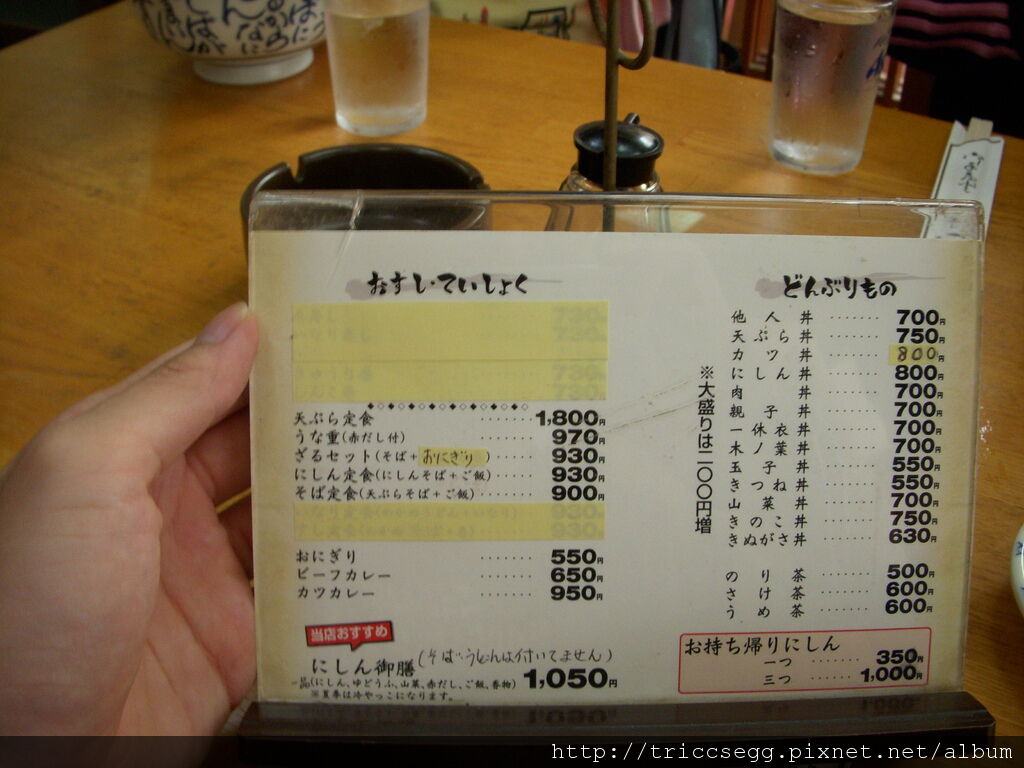 おすし・ていしょく
天ぷら定食 ······· 1,800円
うな重(赤だし付) ······· 970円
ざるセット(そば+おにぎり) ······· 930円
にしん定食(にしんそば+ご飯) ······· 930円
そば定食(天ぷらそば+ご飯) ······· 900円
おにぎり ······· 550円
ビーフカレー ······· 650円
カツカレー ······· 950円
当店おすすめ
にしん御膳(そば・うどんは付いてません)
一品(にしん、ゆどうふ、山菜、赤だし、ご飯、香物) 1,050円
※夏季は冷やっこになります。
どんぶりもの
他人丼 ······· 700円
天ぷら丼 ······· 750円
カツ丼 ······· 800円
にしん丼 ······· 800円
肉丼 ······· 700円
親子丼 ······· 700円
一休衣丼 ······· 700円
木ノ葉丼 ······· 700円
玉子丼 ······· 550円
きつね丼 ······· 550円
山菜丼 ······· 700円
きのこ丼 ······· 750円
きぬがさ丼 ······· 630円
のり茶 ······· 500円
さけ茶 ······· 600円
うめ茶 ······· 600円
※大盛りは二〇〇円増
お持ち帰りにしん
一つ ······· 350円
三つ ······· 1,000円
http://triccsegg.pixnet.net/album